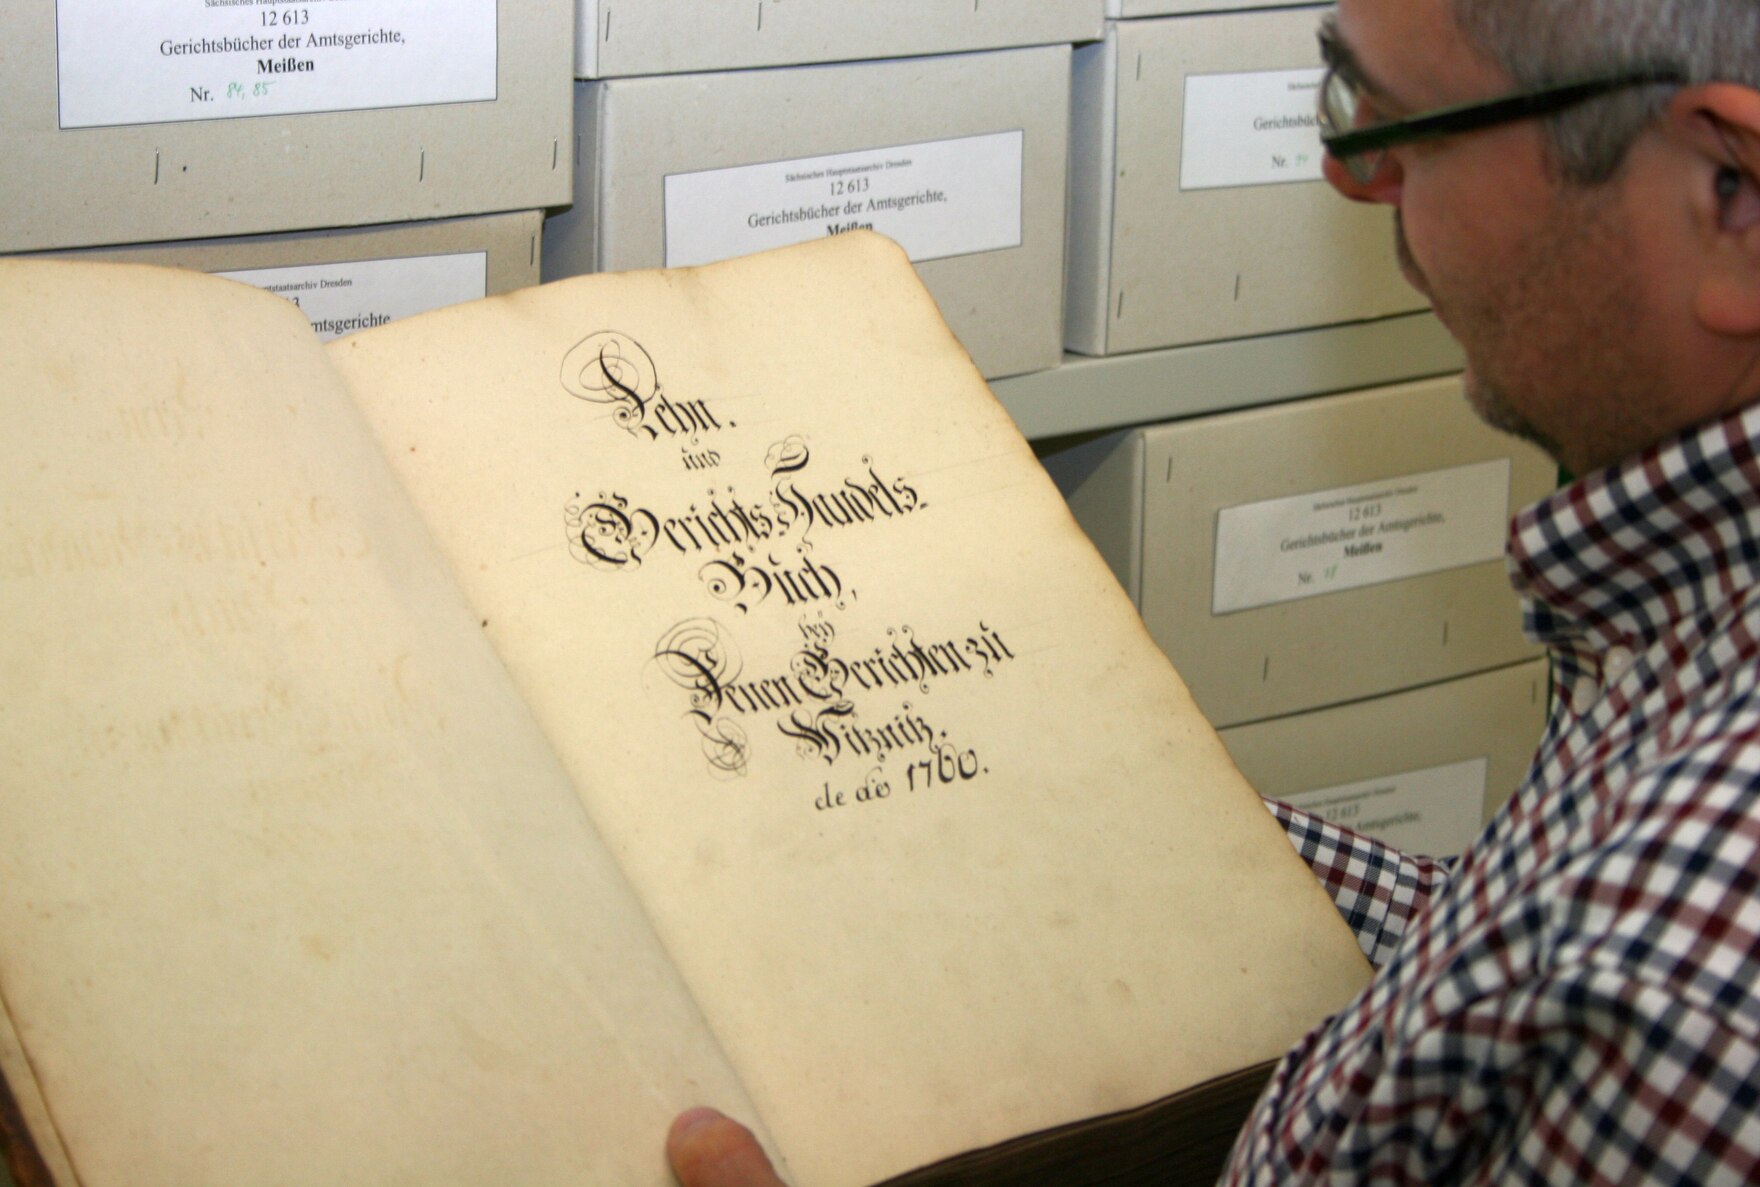 Sächsisches Hauptstaatsarchiv
12 613
Gerichtsbücher der Amtsgerichte,
Meißen
Nr. 84, 85
Sächsisches Hauptstaatsarchiv Dresden
12 613
Gerichtsbücher der Amtsgerichte,
Meißen
Gerichtsbüc
Nr.
tstaatsarchiv Dresden
3
mtsgerichte
Lehn-
und
Gerichts Handels-
Buch,
bey
Denen Gerichten zu
Witznitz.
de ao 1760.
Sächsisches Hauptstaatsarchiv Dresden
12 613
Gerichtsbücher der Amtsgerichte,
Meißen
Nr.
12 613
Amtsgerichte,